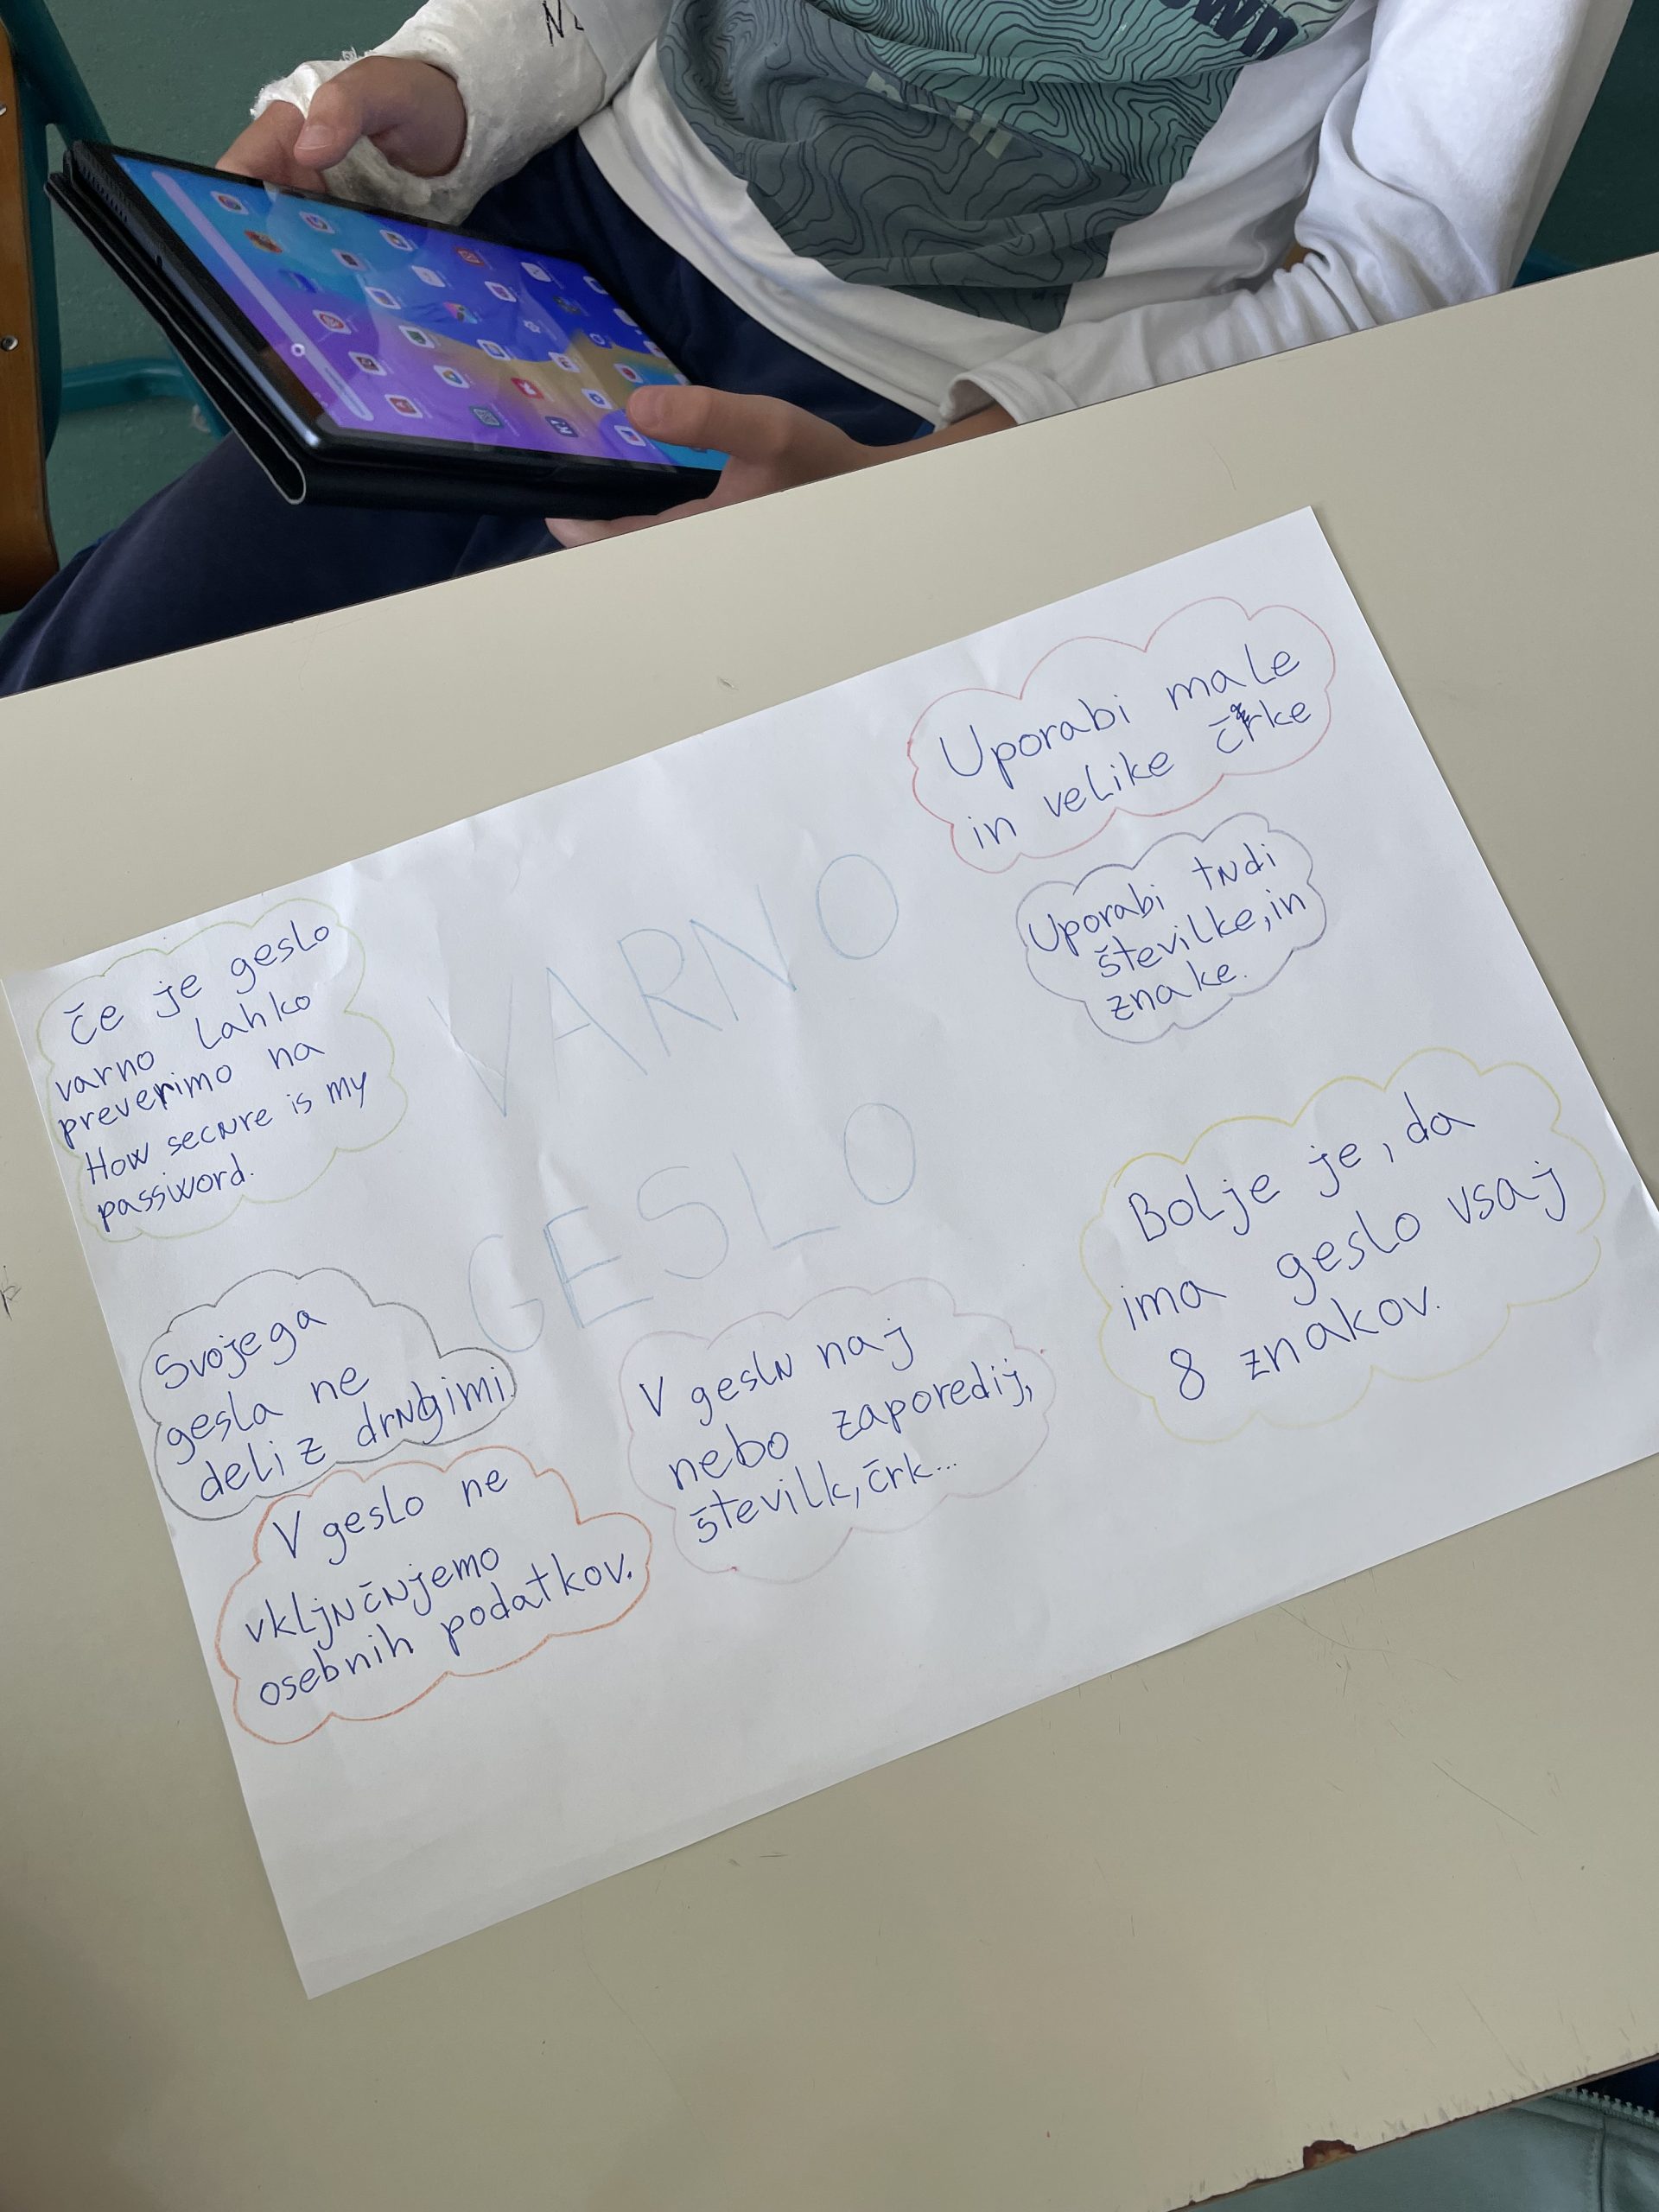 VARNO
GESLO
Uporabi male
in velike črke
Uporabi tudi
številke, in
znake.
Bolje je, da
ima geslo vsaj
8 znakov.
Če je geslo
varno lahko
preverimo na
How secure is my
password.
Svojega
gesla ne
deli z drugimi
V geslu naj
nebo zaporedij,
številk, črk...
V geslo ne
vključujemo
osebnih podatkov.